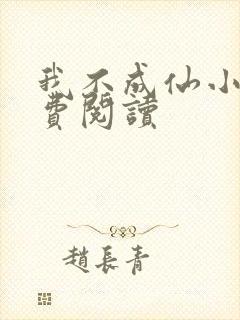 我不成仙小
費閱讀
趙長青